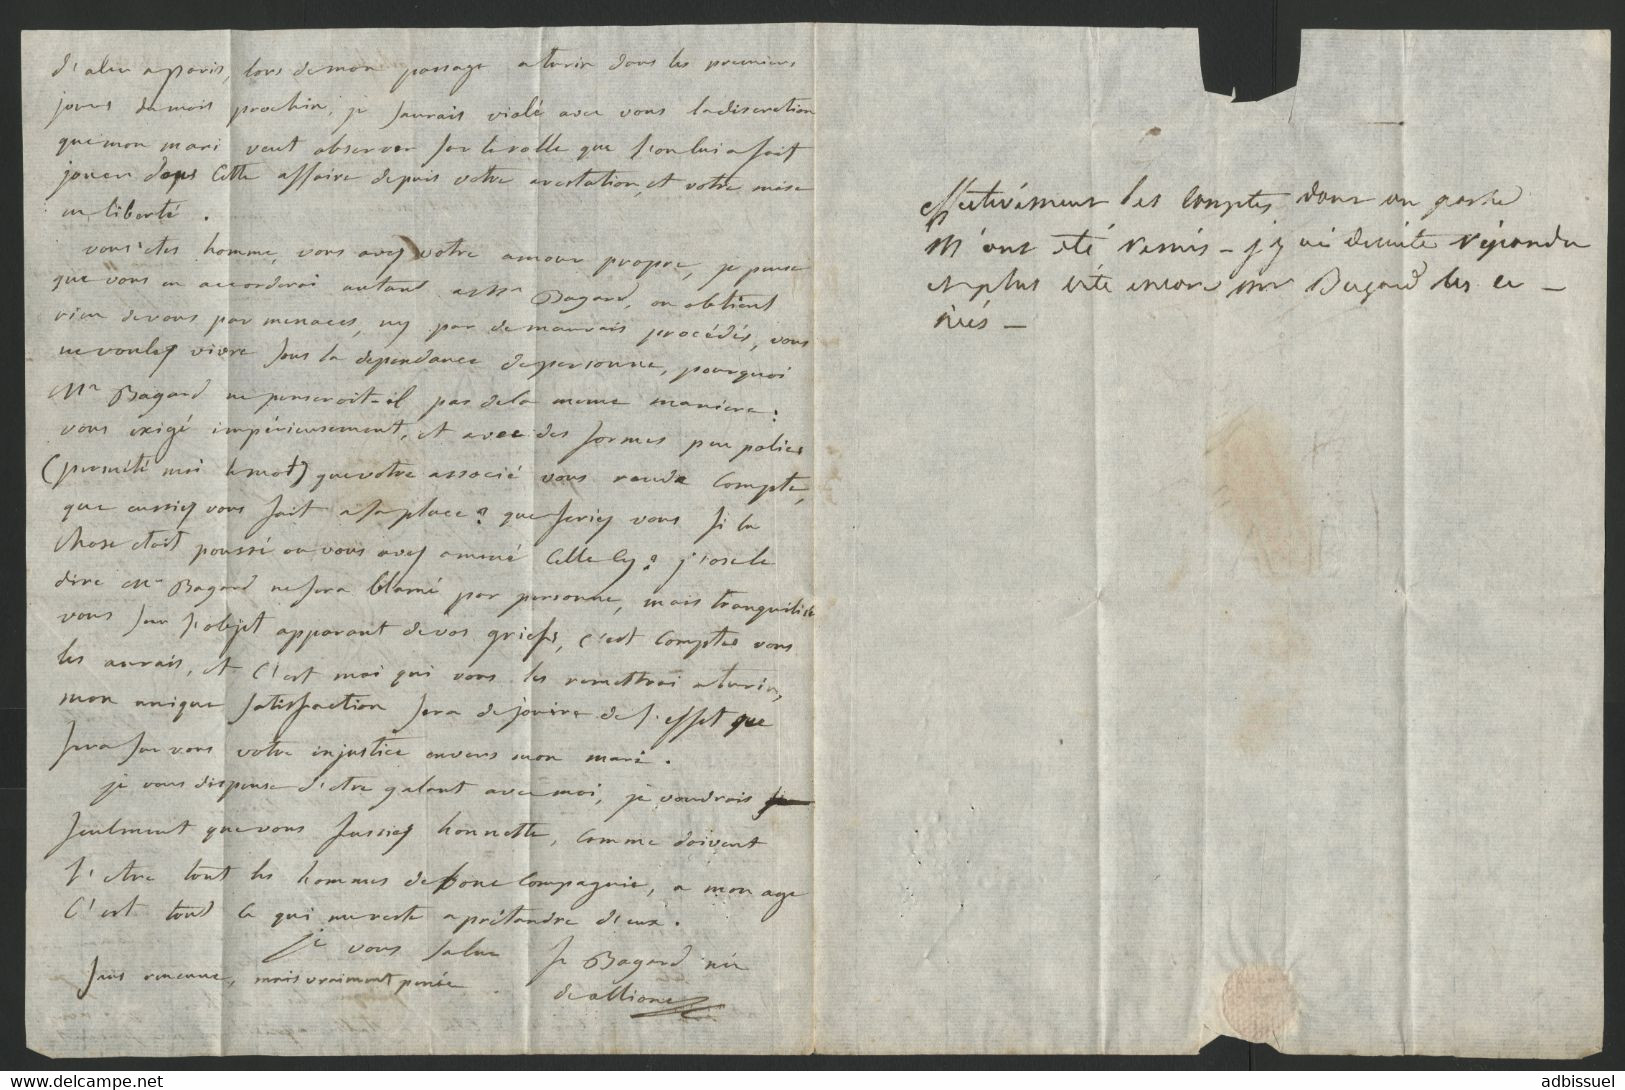 d'aler a paris, lors de mon passage a turin dans les premiers
jours du mois prochin, je saurais violé avec vous la discretion
que mon mari veut observer sur le rolle que l'on lui a fait
jouer dans cette affaire depuis votre arestation, et votre mise
en liberté.
vous etes homme, vous avez votre amour propre, je pense
que vous en accorderai autant a Mr Bagard, on obtient
rien de vous par menaces, ny par de mauvais procédés, vous
ne voulez vivre sous la dependance de personne, pourquoi
Mr Bagard ne penseroit-il pas de la meme maniere?
vous exigé impérieusement, et avec des formes peu polies
(permété moi le mot) que votre associé vous rende compte,
que eussiez vous fait a sa place? que feriez vous si la
chose etoit poussé ou vous avez amené celle cy? j'ose le
dire Mr Bagard ne sera blamé par personne, mais tranquilisé
vous sur l'objet apparant de vos griefs, c'est comptes vous
les aurais, et c'est moi qui vous les remettrai a turin,
mon unique satisfaction sera de jouire de l'effet que
fera sur vous votre injustice envers mon mari.
je vous dispense d'etre galant avec moi, je voudrais
seulment que vous fussiez honnette, comme doivent
l'etre tout les hommes de bone compagnie, a mon age
c'est tout ce qui me reste a prétandre d'eux.
je vous salue
sans rencune, mais vraiment peinée
Bagard née
de allione
effectivement les comptes dans un
m'ont été remis - j'y ai de suite répondu
et plus vite encore mr Bagard les a
niés -
adbissuel